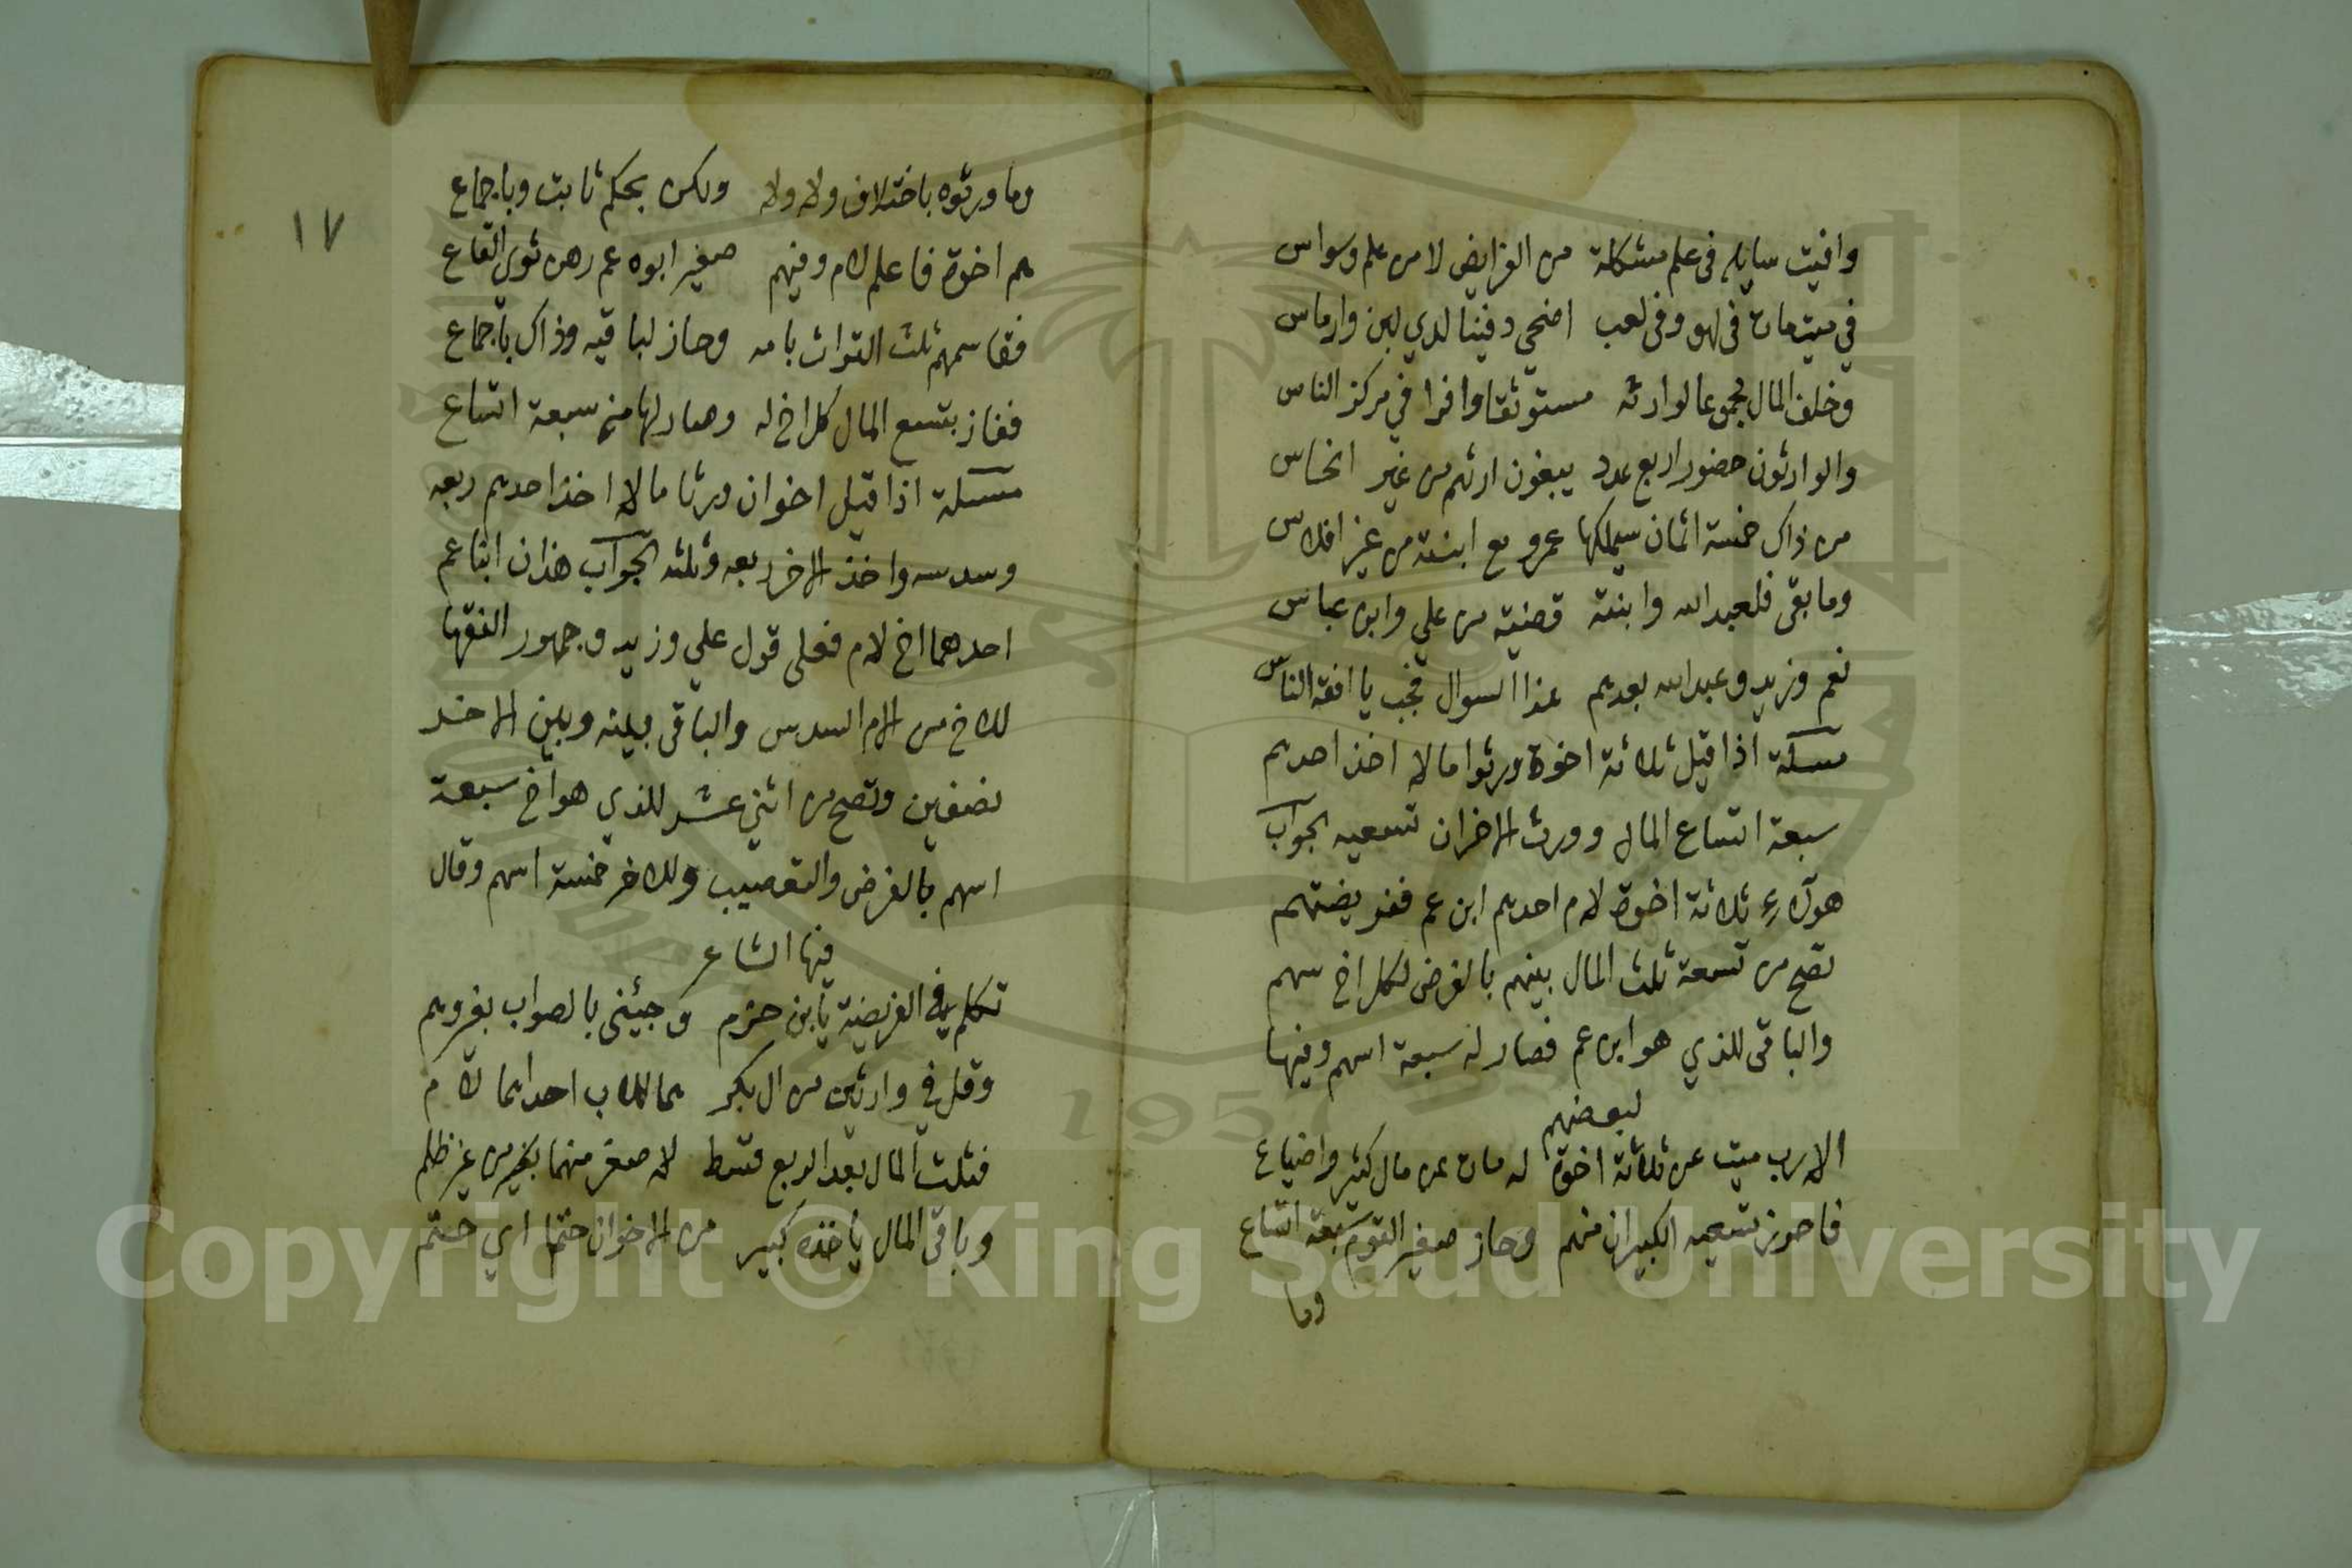 وافيت سايلي في علم مشكلة من الفرايض لا من علم وسواس
في ميت مات في لهو وفي لعب اضحي دفينا لدي لبن وارماس
وخلف المال مجموعا لوارثه مستوثقا وافرا في مركز الناس
والوارثون حضور اربع عدد يبغون ارثهم من غير انحاس
من ذاك خمسة اثمان سيملكها عمرو مع ابنته من غير افلاس
وما بقى فلعبد الله وابنته قضية من علي وابن عباس
نعم وزيد وعبد الله بعدهم هذا السوال فجب يا افقه الناس
مسئلة اذا قيل ثلاثة اخوة ورثوا مالا اخذ احدهم
سبعة اتساع المال وورث الاخران تسعيه الجواب
هولاء ثلاثة اخوة لام احدهم ابن عم ففريضتهم
تصح من تسعة ثلث المال بينهم بالفرض لكل اخ سهم
والباقى للذي هو ابن عم فصار له سبعة اسهم وفيها
لبعضهم
الا رب ميت عن ثلاثة اخوة له مات عن مال كثير واضياع
فاحوز تسعيه الكبيران منهم وحاز صغير القوم سبعة اتساع
وما
١٧
وما ورثوه باختلاف ولا ولا ولكن بحكم ثابت وباجماع
هم اخوة فاعلم لام وفيهم صغير ابوه عم رهن ثوي القاع
فقاسمهم ثلث التراث بامه وحاز لباقيه وذاك باجماع
ففاز بتسع المال كل اخ له وصار لها منهم سبعة اتساع
مسئلة اذا قيل اخوان ورثا مالا اخذ احدهم ربعه
وسدسه واخذ الاخر ربعه وثلثه الجواب هذان ابنا عم
احدهما اخ لام فعلى قول علي وزيد وجمهور الفقها
للاخ من الام السدس والباقى بينه وبين الاخر
نصفين وتصح من اثني عشر للذي هو اخ سبعة
اسهم بالفرض والتعصيب وللاخر خمسة اسهم وقال
فيها الشاعر
تكلم في الفريضة يابن حزم وجيئني بالصواب بغير وهم
وقل في وارثين من ال بكر هما للاب احداهما لام
فثلث المال بعد الربع قسط لاصغر منهما من غير ظلم
وباقى المال ياخذه كبير من الاخوان حتما اي حتم
Copyright © King Saud University
1957